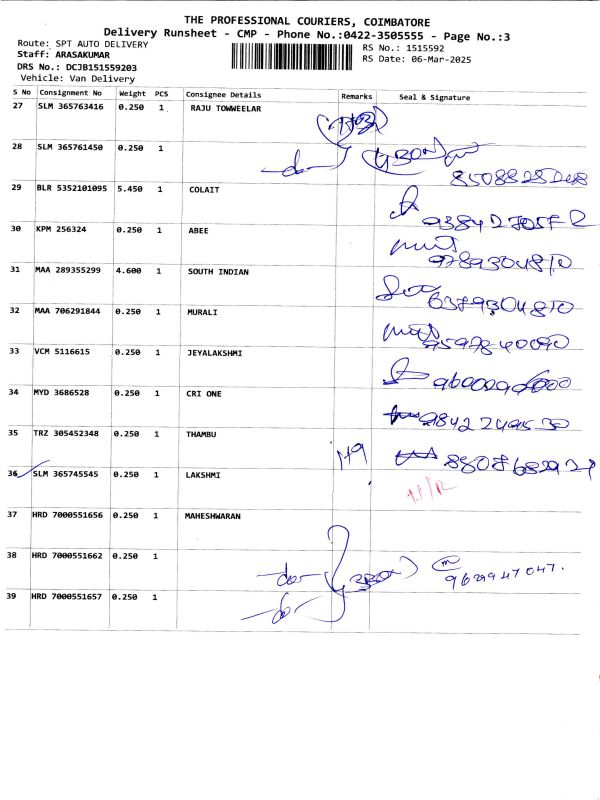 THE PROFESSIONAL COURIERS, COIMBATORE
Delivery Runsheet - CMP - Phone No.:0422-3505555 - Page No.:3
Route: SPT AUTO DELIVERY
Staff: ARASAKUMAR
DRS No.: DCJB151559203
Vehicle: Van Delivery
RS No.: 1515592
RS Date: 06-Mar-2025
S No Consignment No Weight PCS Consignee Details Remarks Seal & Signature
27 SLM 365763416 0.250 1 RAJU TOWWEELAR
28 SLM 365761450 0.250 1
29 BLR 5352101095 5.450 1 COLAIT
30 KPM 256324 0.250 1 ABEE
9789304810
31 MAA 289355299 4.600 1 SOUTH INDIAN
6379304810
32 MAA 706291844 0.250 1 MURALI
33 VCM 5116615 0.250 1 JEYALAKSHMI
34 MYD 3686528 0.250 1 CRI ONE
9842249530
35 TRZ 305452348 0.250 1 THAMBU
36 SLM 365745545 0.250 1 LAKSHMI
37 HRD 7000551656 0.250 1 MAHESHWARAN
38 HRD 7000551662 0.250 1
9629947047.
39 HRD 7000551657 0.250 1